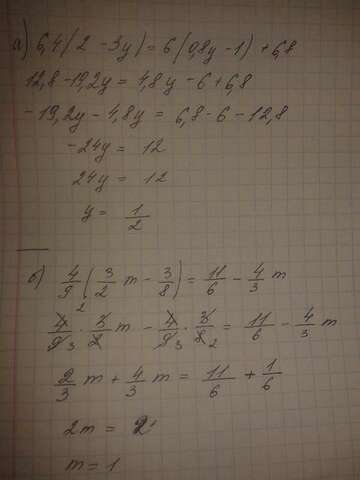 а) 6,4(2 - 3y) = 6(0,8y - 1) + 6,8
12,8 - 19,2y = 4,8y - 6 + 6,8
- 19,2y - 4,8y = 6,8 - 6 - 12,8
- 24y = 12
24y = 12
y = 1/2
б) 4/9 (3/2 m - 3/8) = 11/6 - 4/3 m
4/9 · 3/2 m - 4/9 · 3/8 = 11/6 - 4/3 m
2/3 m + 4/3 m = 11/6 + 1/6
2m = 2
m = 1